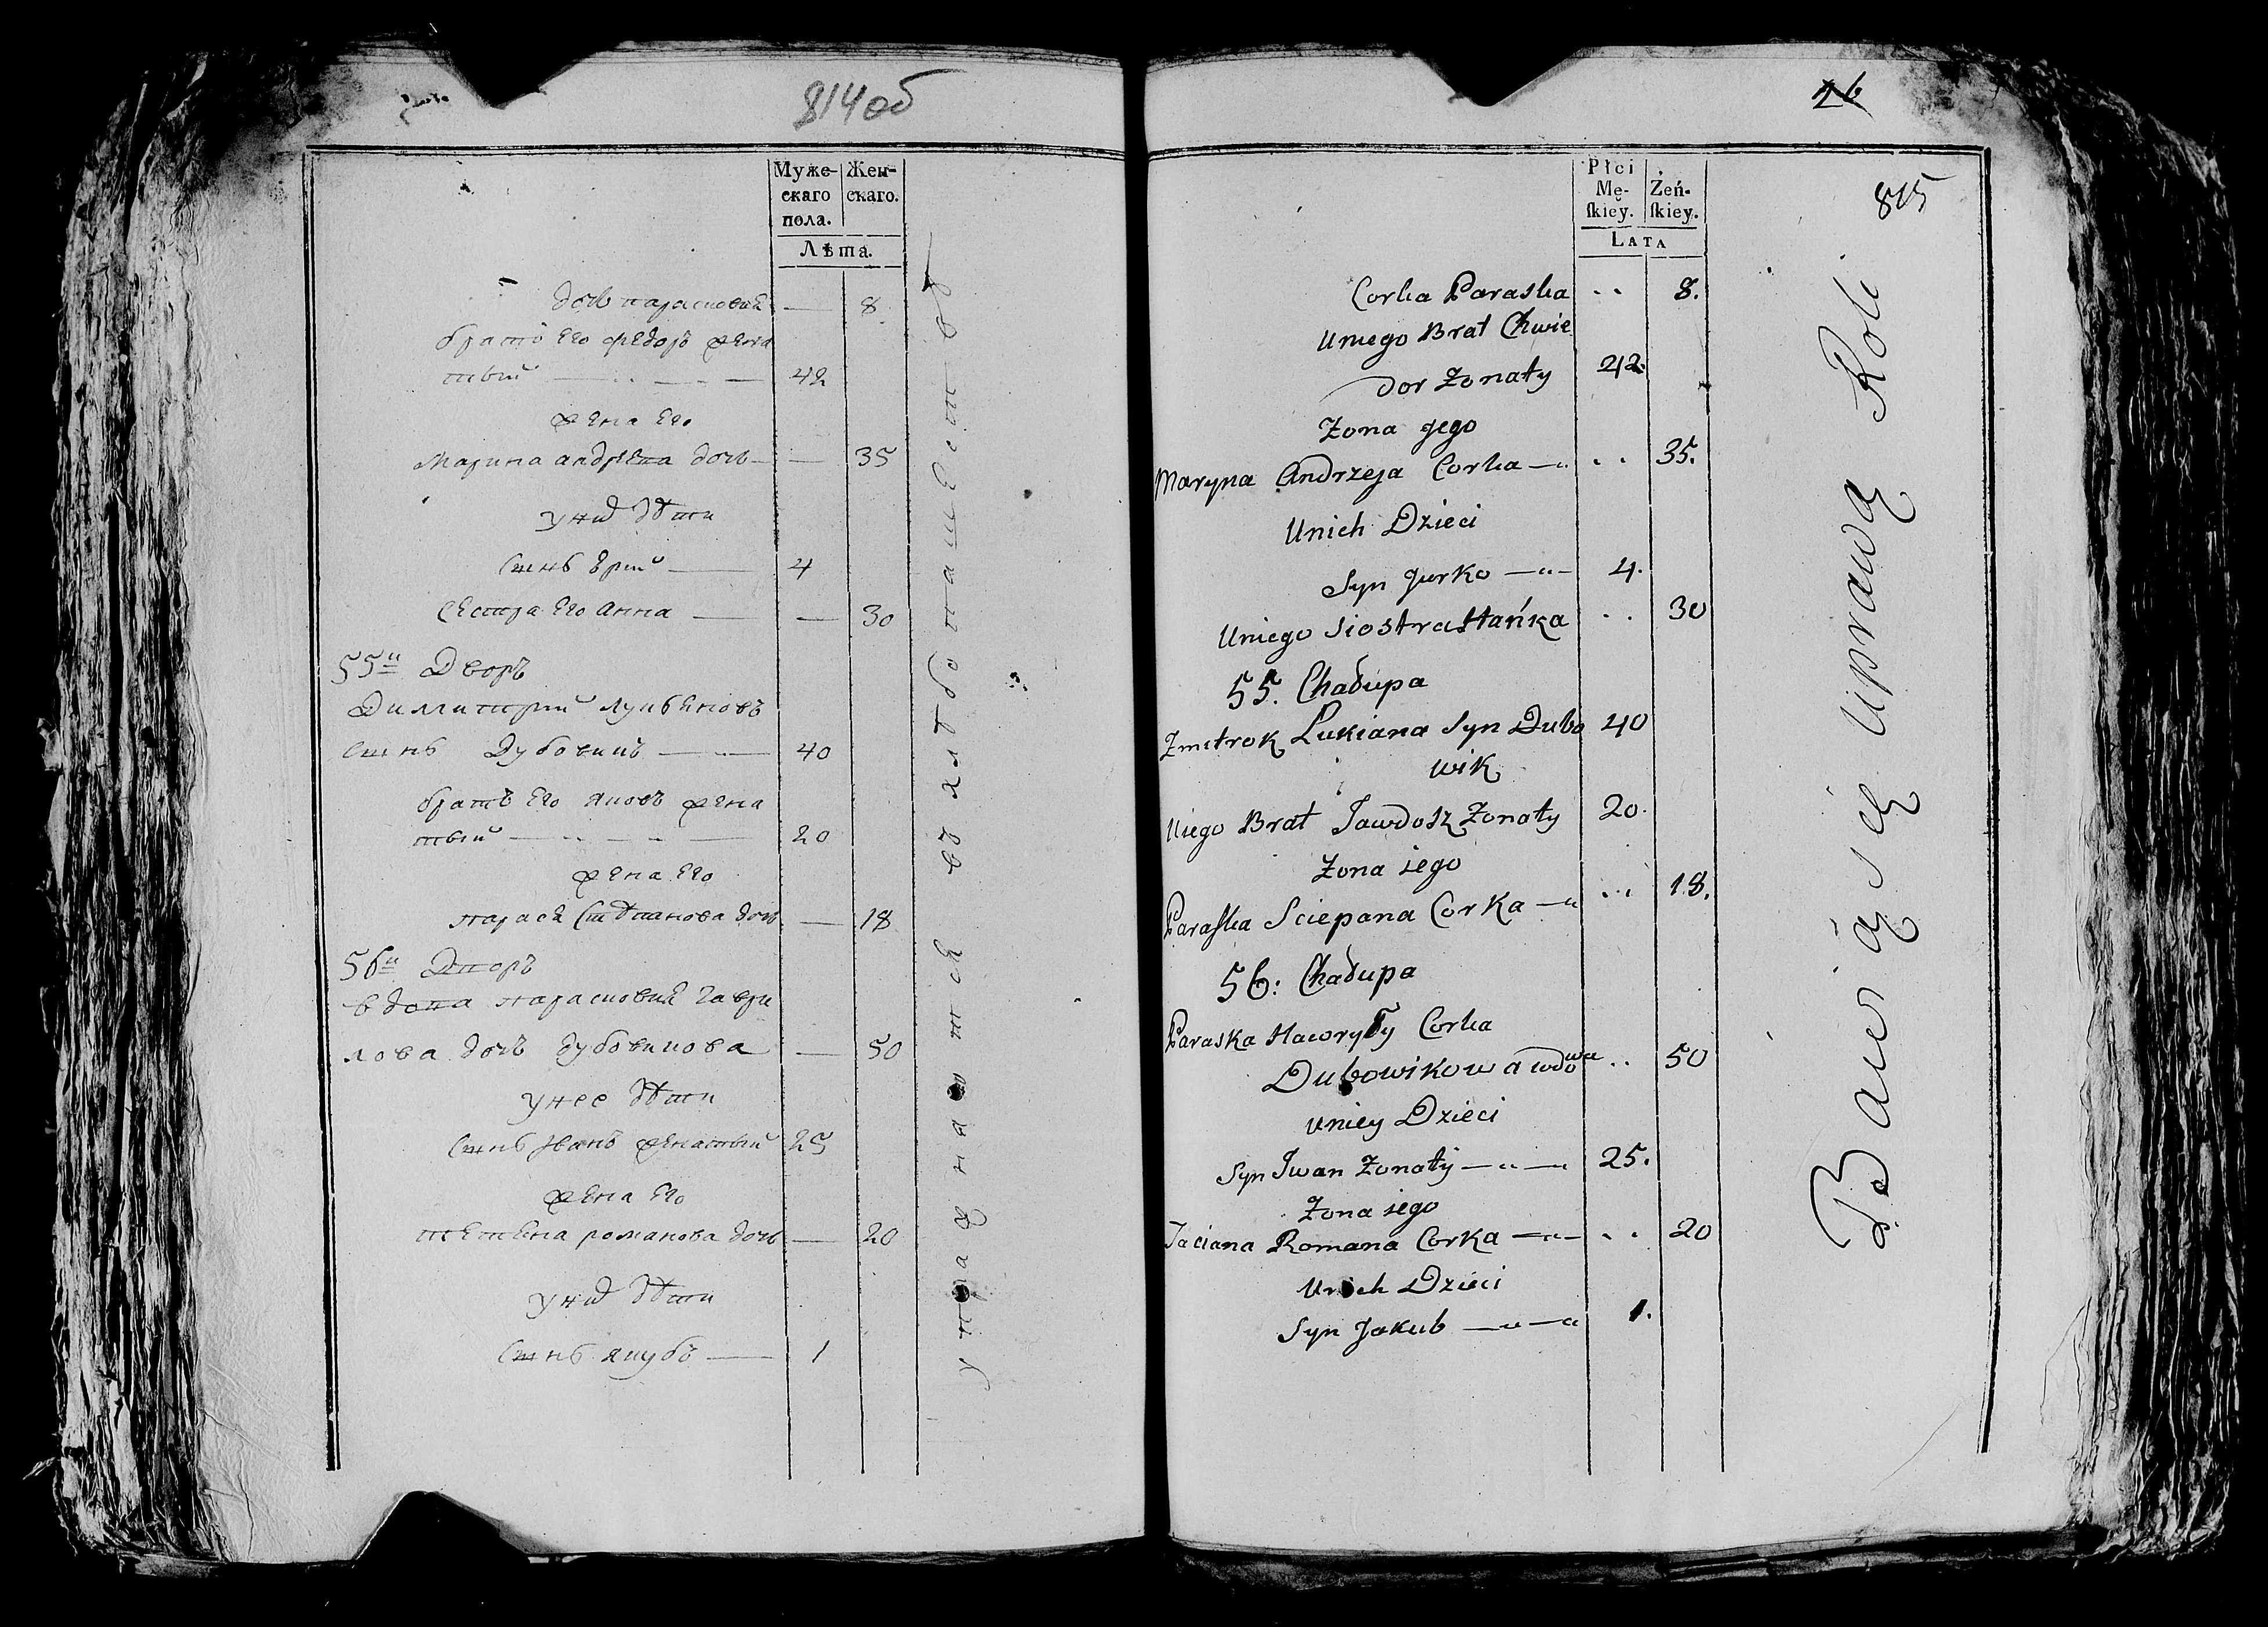 814об
Муже- Жен-
скаго скаго.
пола.
Лѣта.
дочь парасковия — 8
братъ его федоръ жена
тый — 42
жена его
Марина андреева дочь — 35
у них дѣти
Сынъ Юрий — 4
Сестра его анна — 30
55й Дворъ
Димитрий лукьяновъ
Сынъ Дубовикъ — 40
братъ его яковъ жена
тый — 20
жена его
парася Стѣпанова дочь — 18
56й Дворъ
вдова парасковия Гаври
лова дочь дубовикова — 50
у нее дѣти
Сынъ иванъ женатый 25
жена его
татьяна романова дочь — 20
у них дѣти
Сынъ якубъ — 1
упражняются въ хлѣбопашествѣ
26
815
Płci
Mę- Żeń-
skiey. skiey.
LATA
Corka Paraska .. 8.
Uniego Brat Chwie
dor Zonaty 42.
Zona jego
Maryna Andrzeja Corka .. 35.
Unich Dzieci
Syn Jurko 4.
Uniego Siostra Hańka .. 30
55. Chałupa
Zmitrok Lukiana Syn Dubo 40
wik
Uiego Brat Jawdosz Zonaty 20.
Zona iego
Paraska Sciepana Corka .. 18.
56: Chałupa
Paraska Hawryły Corka
Dubowikowa wdowa .. 50
Uniey Dzieci
Syn Iwan Zonaty 25.
Zona iego
Taciana Romana Corka .. 20
Unich Dzieci
Syn Jakub 1.
Bawią się Uprawą Roli